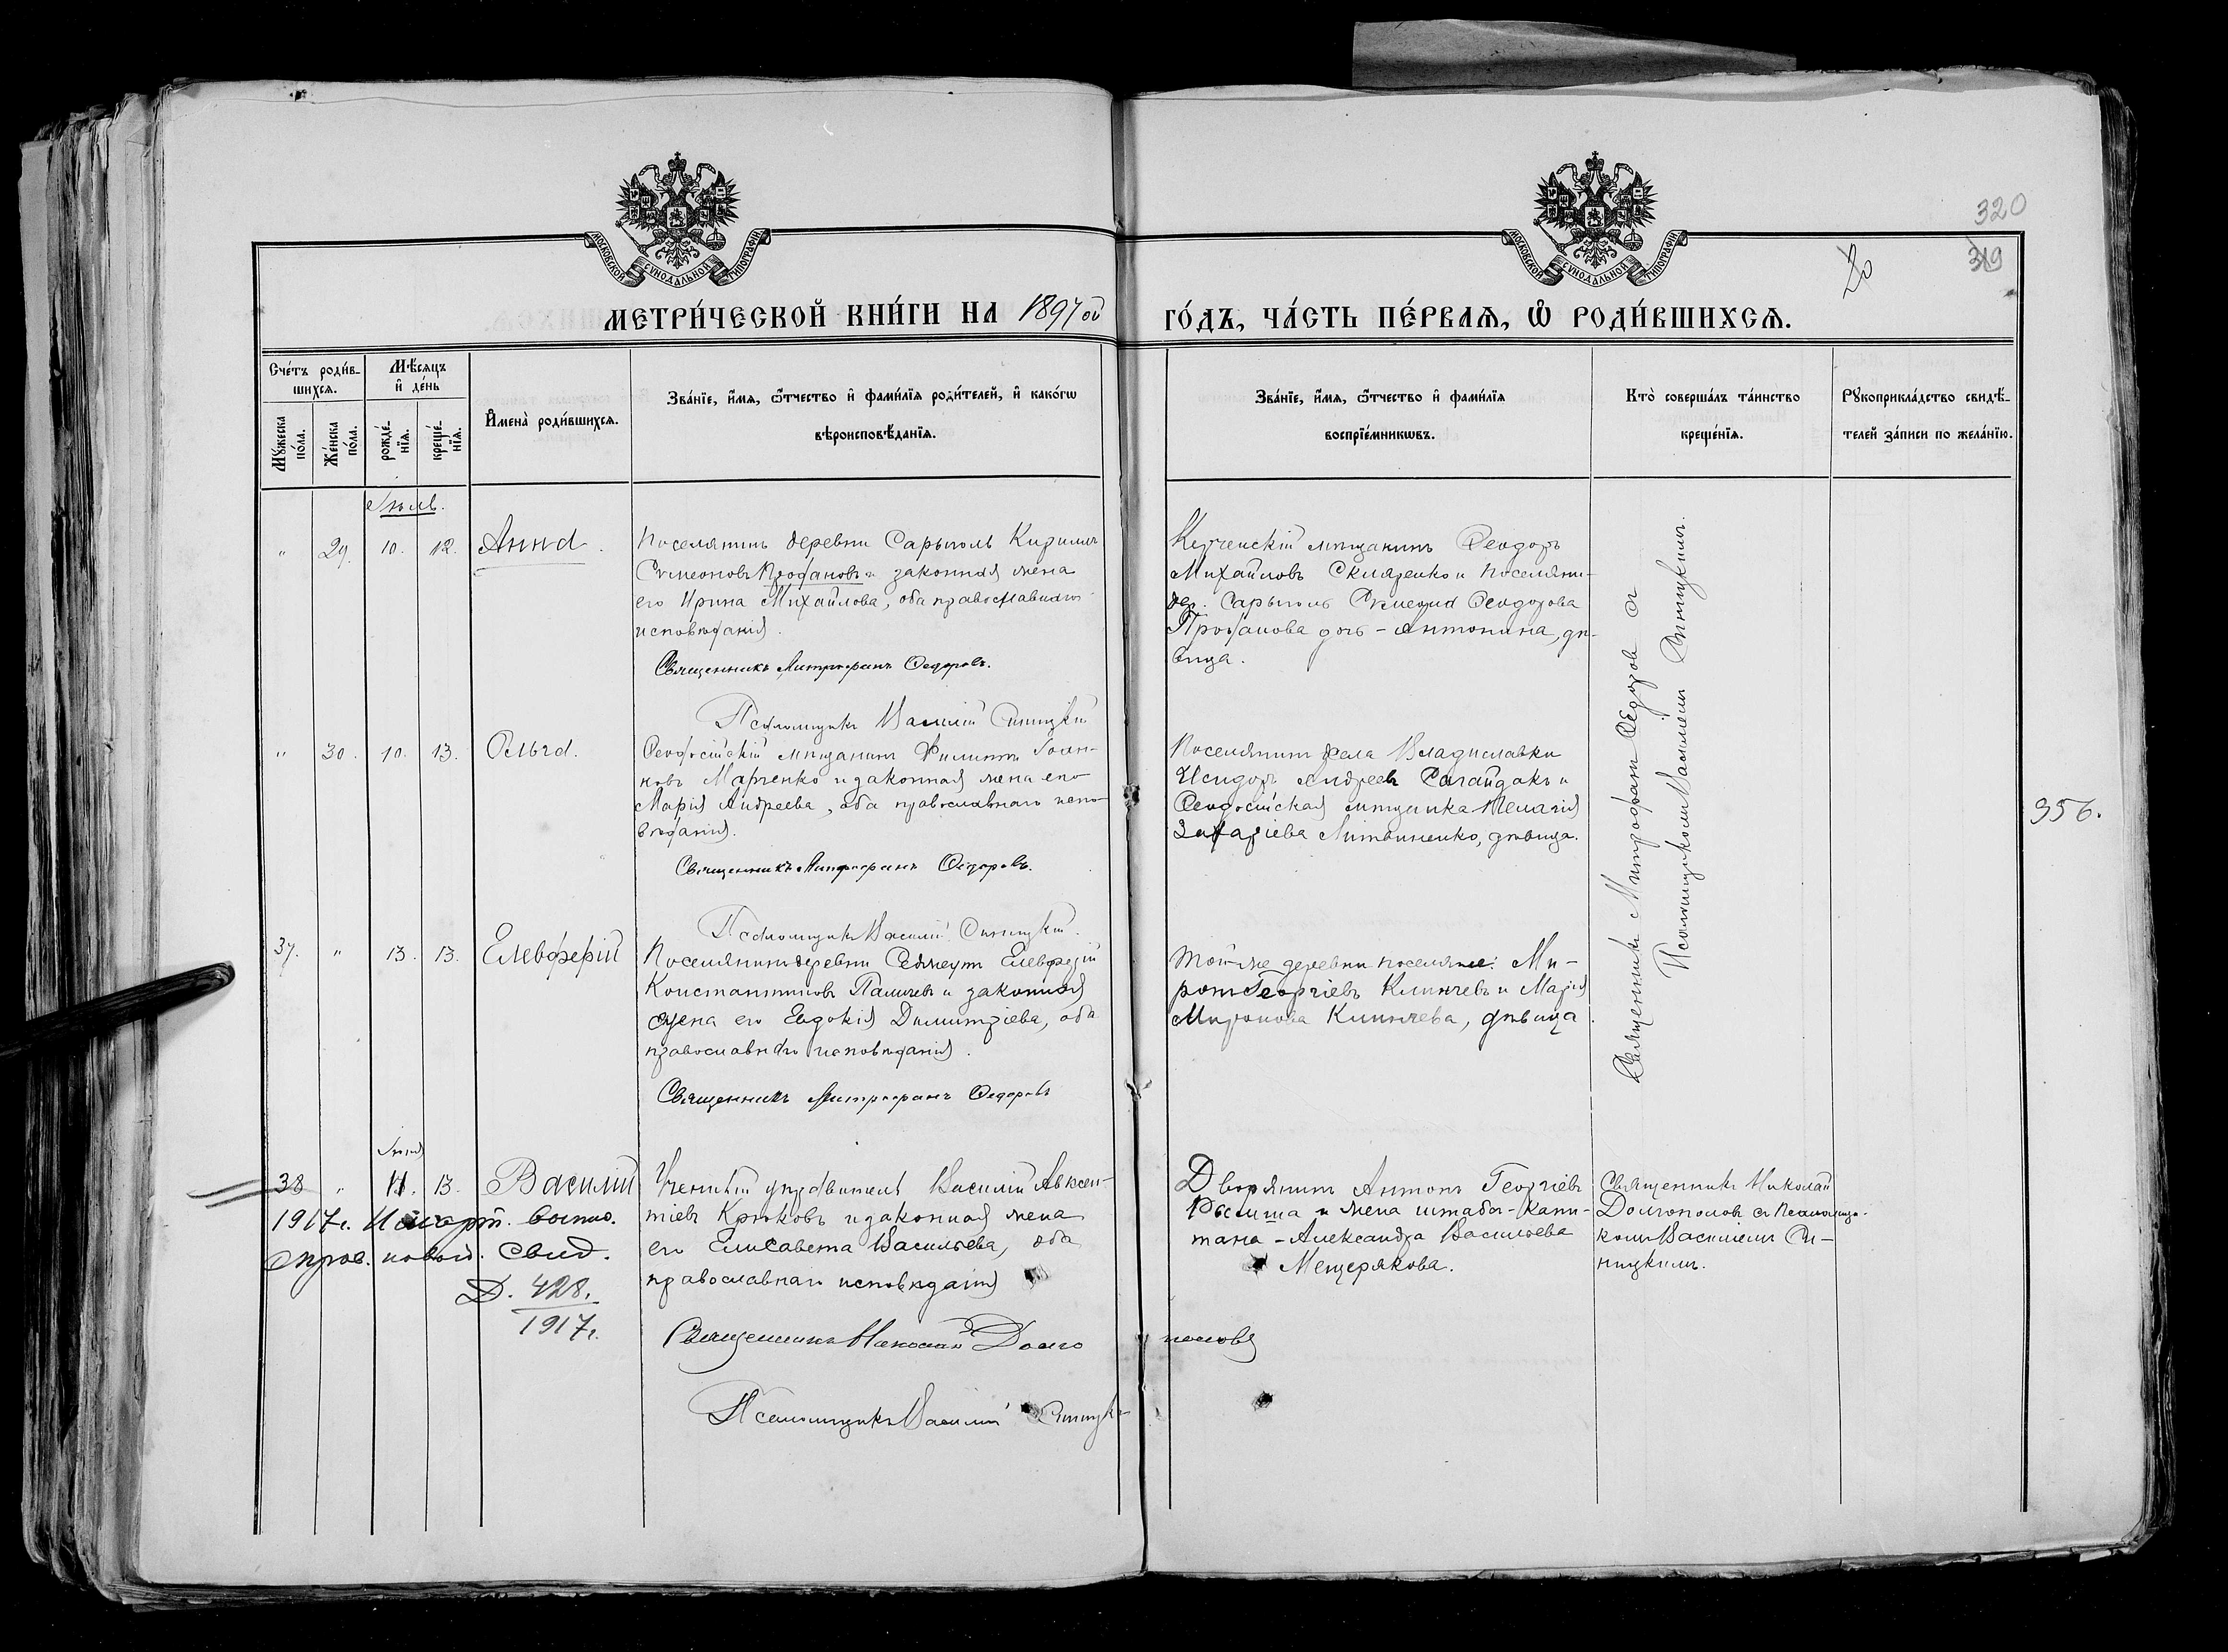 320
319
20
МОСКОВСКОЙ СУНОДАЛЬНОЙ ТИПОГРАФИИ
МОСКОВСКОЙ СУНОДАЛЬНОЙ ТИПОГРАФИИ
МЕТРИ́ЧЕСКОЙ КНИ́ГИ НА 1897 ой ГО́ДЪ, ЧА́СТЬ ПЕ́РВАѦ, Ѡ РОДИ́ВШИХСѦ.
Сче́тъ роди́в-
шихсѧ.
Мѣ́сѧцъ
и҆ де́нь
Мꙋ́жеска
по́ла.
Же́нска
по́ла.
рожде́-
нїѧ.
креще́-
нїѧ.
И҆мена̀ роди́вшихсѧ.
Зва́нїе, и҆́мѧ, ѻ҆́тчество и҆ фами́лїѧ роди́телей, и҆ како́гѡ
вѣроисповѣ́данїѧ.
Зва́нїе, и҆́мѧ, ѻ҆́тчество и҆ фами́лїѧ
воспрїе́мникѡвъ.
Кто̀ соверша́лъ та́инство
креще́нїѧ.
Рꙋкоприкла́дство свидѣ́-
телей за́писи по жела́нїю.
" 29. 10. 12. Анна.
Поселянинъ деревни Сарыголь Кириллъ
Симеоновъ Профановъ и законная жена
его Ирина Михайлова, оба православнаго
исповѣданія.
Священникъ Митрофанъ Ѳедоровъ.
Псаломщикъ Василій Синицкій
Керченскій мѣщанинъ Ѳеодоръ
Михайловъ Скляренко и поселяни-
дер. Сарыголь Симеона Ѳеодорова
Профанова дочь - Антонина, дѣ-
вица.
Священникъ Митрофанъ Ѳедоровъ съ
Псаломщикомъ Василіемъ Синицкимъ.
" 30. 10. 13. Ольга.
Ѳеодосійскій мѣщанинъ Филиппъ Іоан-
новъ Марченко и законная жена его
Марія Андреева, оба православнаго испо-
вѣданія.
Священникъ Митрофанъ Ѳедоровъ.
Псаломщикъ Василій Синицкій.
Поселянинъ села Владиславки
Исидоръ Андреевъ Сагайдакъ и
Ѳеодосійская мѣщанка Пелагія
Захаріева Литвиненко, дѣвица.
956.
37. " 13. 13. Елевферій
Поселянинъ деревни Елевферій
Константиновъ Паличевъ и законная
жена его Евдокія Димитріева, оба
православнаго исповѣданія.
Священникъ Митрофанъ Ѳедоровъ
Той-же деревни поселяне: Ми-
ронъ Георгіевъ Клинчевъ и Марія
Миронова Клинчева, дѣвица.
38 " 11. 13. Василій
1917г. свид.
Д. 428.
1917г.
Ученый управитель Василій Авксен-
тіевъ Крюковъ и законная жена
его Елисавета Васильева, оба
православнаго исповѣданія
Священникъ Николай Долгополовъ
Псаломщикъ Василій Синицкій
Дворянинъ Антонъ Георгіевъ
и жена штабс-капи-
тана - Александра Васильева
Мещерякова.
Священникъ Николай
Долгополовъ съ Псаломщи-
комъ Василіемъ Си-
ницкимъ.